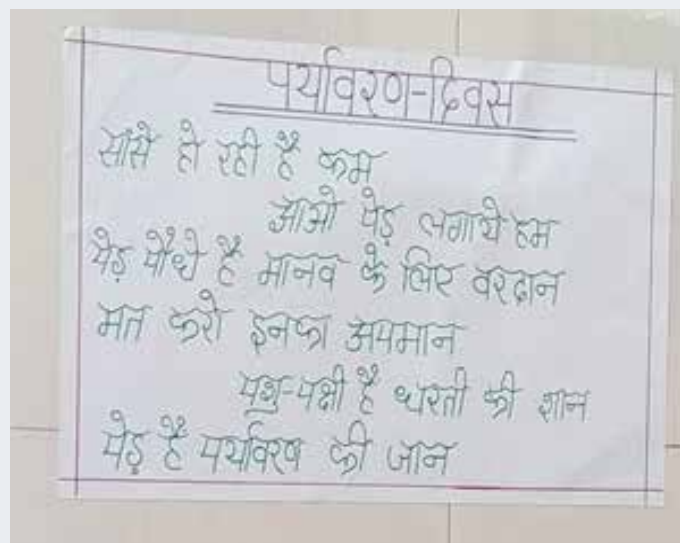 पर्यावरण-दिवस
सांसे हो रही है कम
आओ पेड़ लगाये हम
पेड़ पौधे है मानव के लिए वरदान
मत करो इनका अपमान
पशु-पक्षी है धरती की शान
पेड़ है पर्यावरण की जान